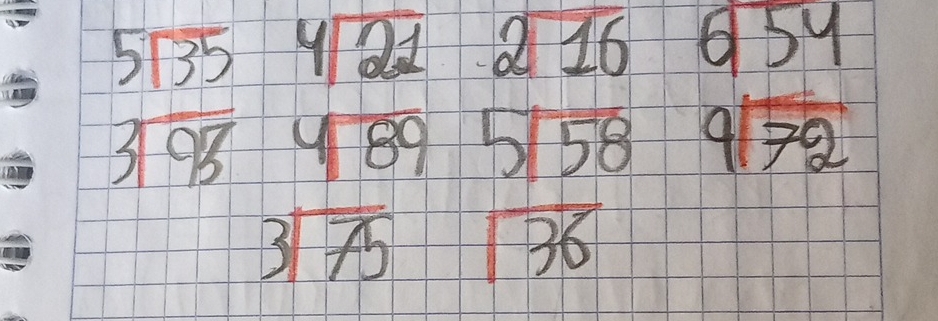 5 35 4 21 2 16 6 54
3 93 4 89 5 58 9 72
3 75 36